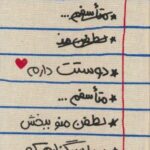 * متأسفم...
* لطفن منو
* دوستت دارم
* متأسفم...
* لطفن منو ببخش